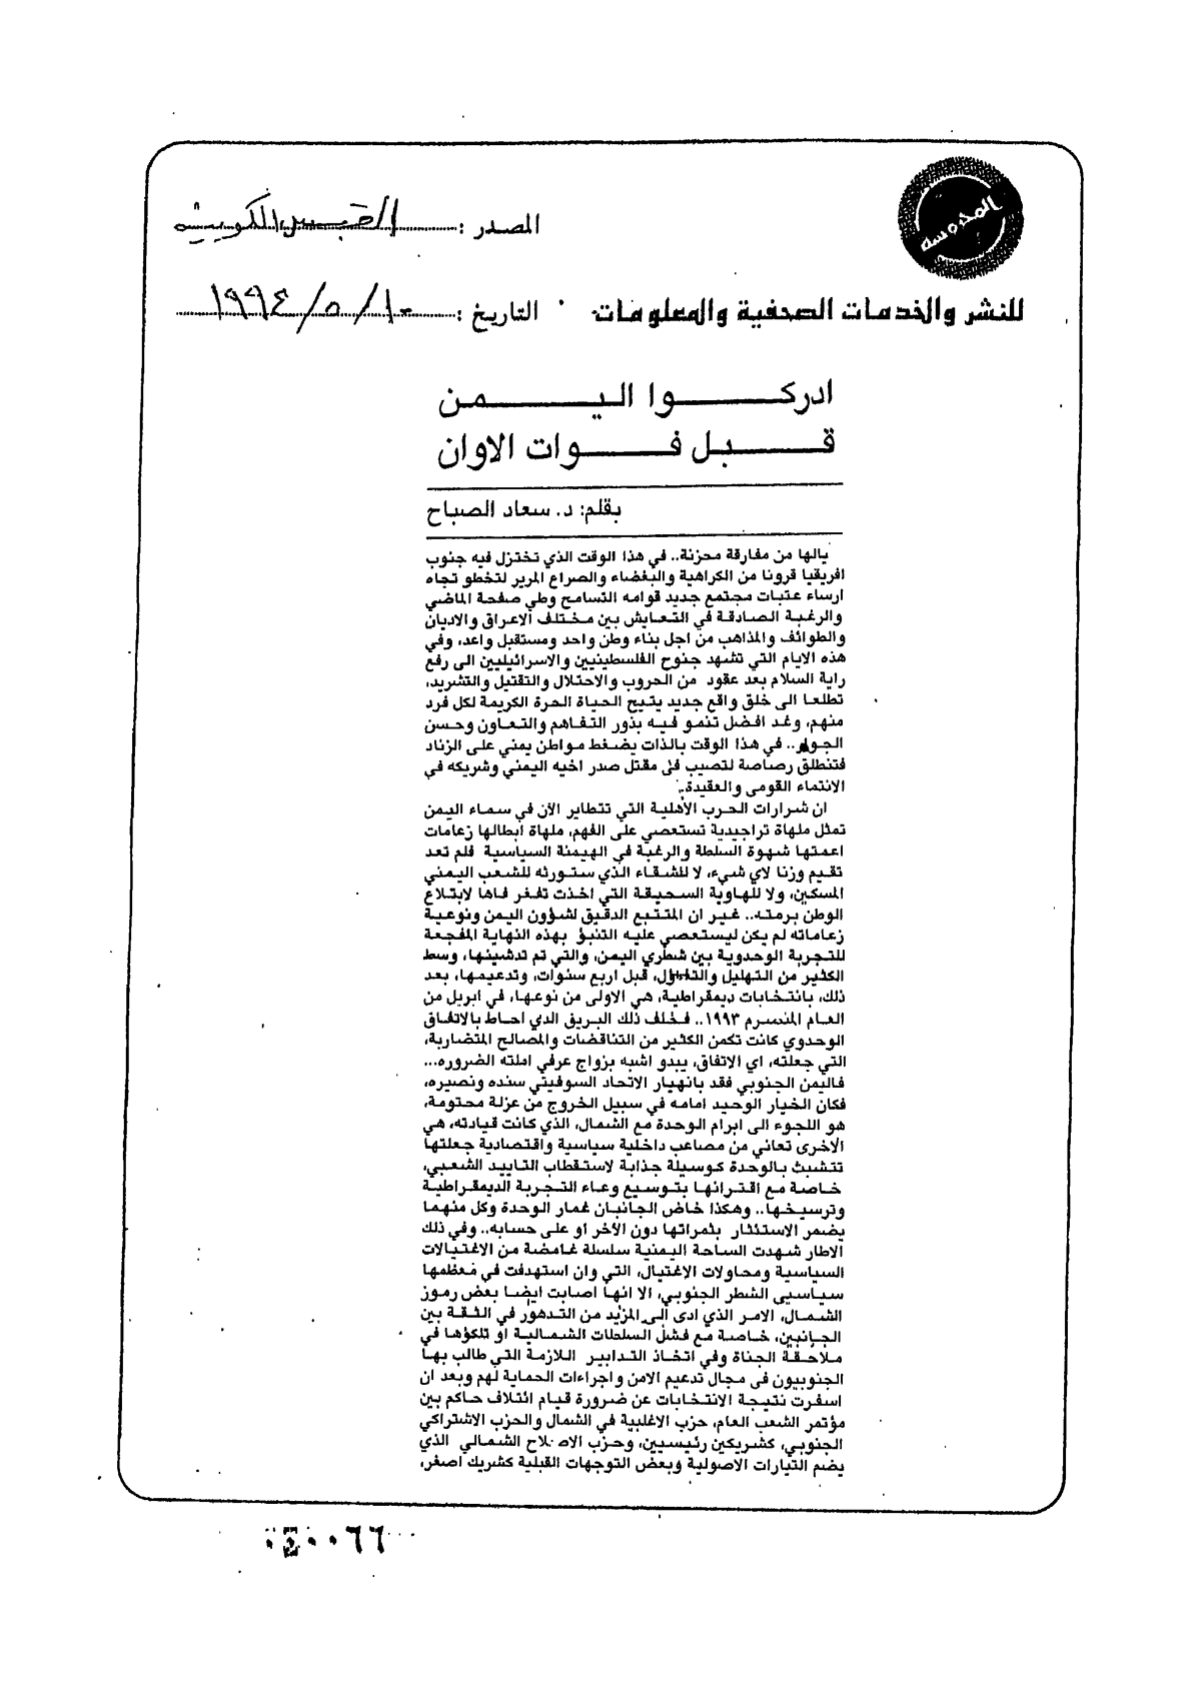 المحروسه
المصدر : القبس الكويتية
للنشر والخدمات الصحفية والمعلومات
التاريخ : ١٠/٥/١٩٩٤
ادركوا اليمن
قبل فوات الاوان
بقلم: د. سعاد الصباح
يالها من مفارقة محزنة.. في هذا الوقت الذي تختزل فيه جنوب
افريقيا قرونا من الكراهية والبغضاء والصراع المرير لتخطو تجاه
ارساء عتبات مجتمع جديد قوامه التسامح وطي صفحة الماضي
والرغبة الصادقة في التعايش بين مختلف الاعراق والاديان
والطوائف والمذاهب من اجل بناء وطن واحد ومستقبل واعد، وفي
هذه الايام التي تشهد جنوح الفلسطينيين والاسرائيليين الى رفع
راية السلام بعد عقود من الحروب والاحتلال والتقتيل والتشريد،
تطلعا الى خلق واقع جديد يتيح الحياة الحرة الكريمة لكل فرد
منهم، وغد افضل تنمو فيه بذور التفاهم والتعاون وحسن
الجوار.. في هذا الوقت بالذات يضغط مواطن يمني على الزناد
فتنطلق رصاصة لتصيب في مقتل صدر اخيه اليمني وشريكه في
الانتماء القومى والعقيدة.
ان شرارات الحرب الأهلية التي تتطاير الآن في سماء اليمن
تمثل ملهاة تراجيدية تستعصي على الفهم، ملهاة ابطالها زعامات
اعمتها شهوة السلطة والرغبة في الهيمنة السياسية فلم تعد
تقيم وزنا لاي شيء، لا للشقاء الذي ستورثه للشعب اليمني
المسكين، ولا للهاوية السحيقة التي اخذت تفغر فاها لابتلاع
الوطن برمته.. غير ان المتتبع الدقيق لشؤون اليمن ونوعية
زعاماته لم يكن ليستعصي عليه التنبؤ بهذه النهاية المفجعة
للتجربة الوحدوية بين شطري اليمن، والتي تم تدشينها، وسط
الكثير من التهليل والتفاؤل، قبل اربع سنوات، وتدعيمها، بعد
ذلك، بانتخابات ديمقراطية، هي الاولى من نوعها، في ابريل من
العام المنصرم ١٩٩٣.. فخلف ذلك البريق الذي احاط بالاتفاق
الوحدوي كانت تكمن الكثير من التناقضات والمصالح المتضاربة،
التي جعلته، اي الاتفاق، يبدو اشبه بزواج عرفي املته الضروره...
فاليمن الجنوبي فقد بانهيار الاتحاد السوفيتي سنده ونصيره،
فكان الخيار الوحيد امامه في سبيل الخروج من عزلة محتومة،
هو اللجوء الى ابرام الوحدة مع الشمال، الذي كانت قيادته، هي
الاخرى تعاني من مصاعب داخلية سياسية واقتصادية جعلتها
تتشبث بالوحدة كوسيلة جذابة لاستقطاب التاييد الشعبي،
خاصة مع اقترانها بتوسيع وعاء التجربة الديمقراطية
وترسيخها.. وهكذا خاض الجانبان غمار الوحدة وكل منهما
يضمر الاستئثار بثمراتها دون الآخر او على حسابه.. وفي ذلك
الاطار شهدت الساحة اليمنية سلسلة غامضة من الاغتيالات
السياسية ومحاولات الاغتيال، التي وان استهدفت في معظمها
سياسيي الشطر الجنوبي، الا انها اصابت ايضا بعض رموز
الشمال، الامر الذي ادى الى المزيد من التدهور في الثقة بين
الجانبين، خاصة مع فشل السلطات الشمالية او تلكؤها في
ملاحقة الجناة وفي اتخاذ التدابير اللازمة التي طالب بها
الجنوبيون فى مجال تدعيم الامن واجراءات الحماية لهم وبعد ان
اسفرت نتيجة الانتخابات عن ضرورة قيام ائتلاف حاكم بين
مؤتمر الشعب العام، حزب الاغلبية في الشمال والحزب الاشتراكي
الجنوبي، كشريكين رئيسيين، وحزب الاصلاح الشمالي الذي
يضم التيارات الاصولية وبعض التوجهات القبلية كشريك اصغر،